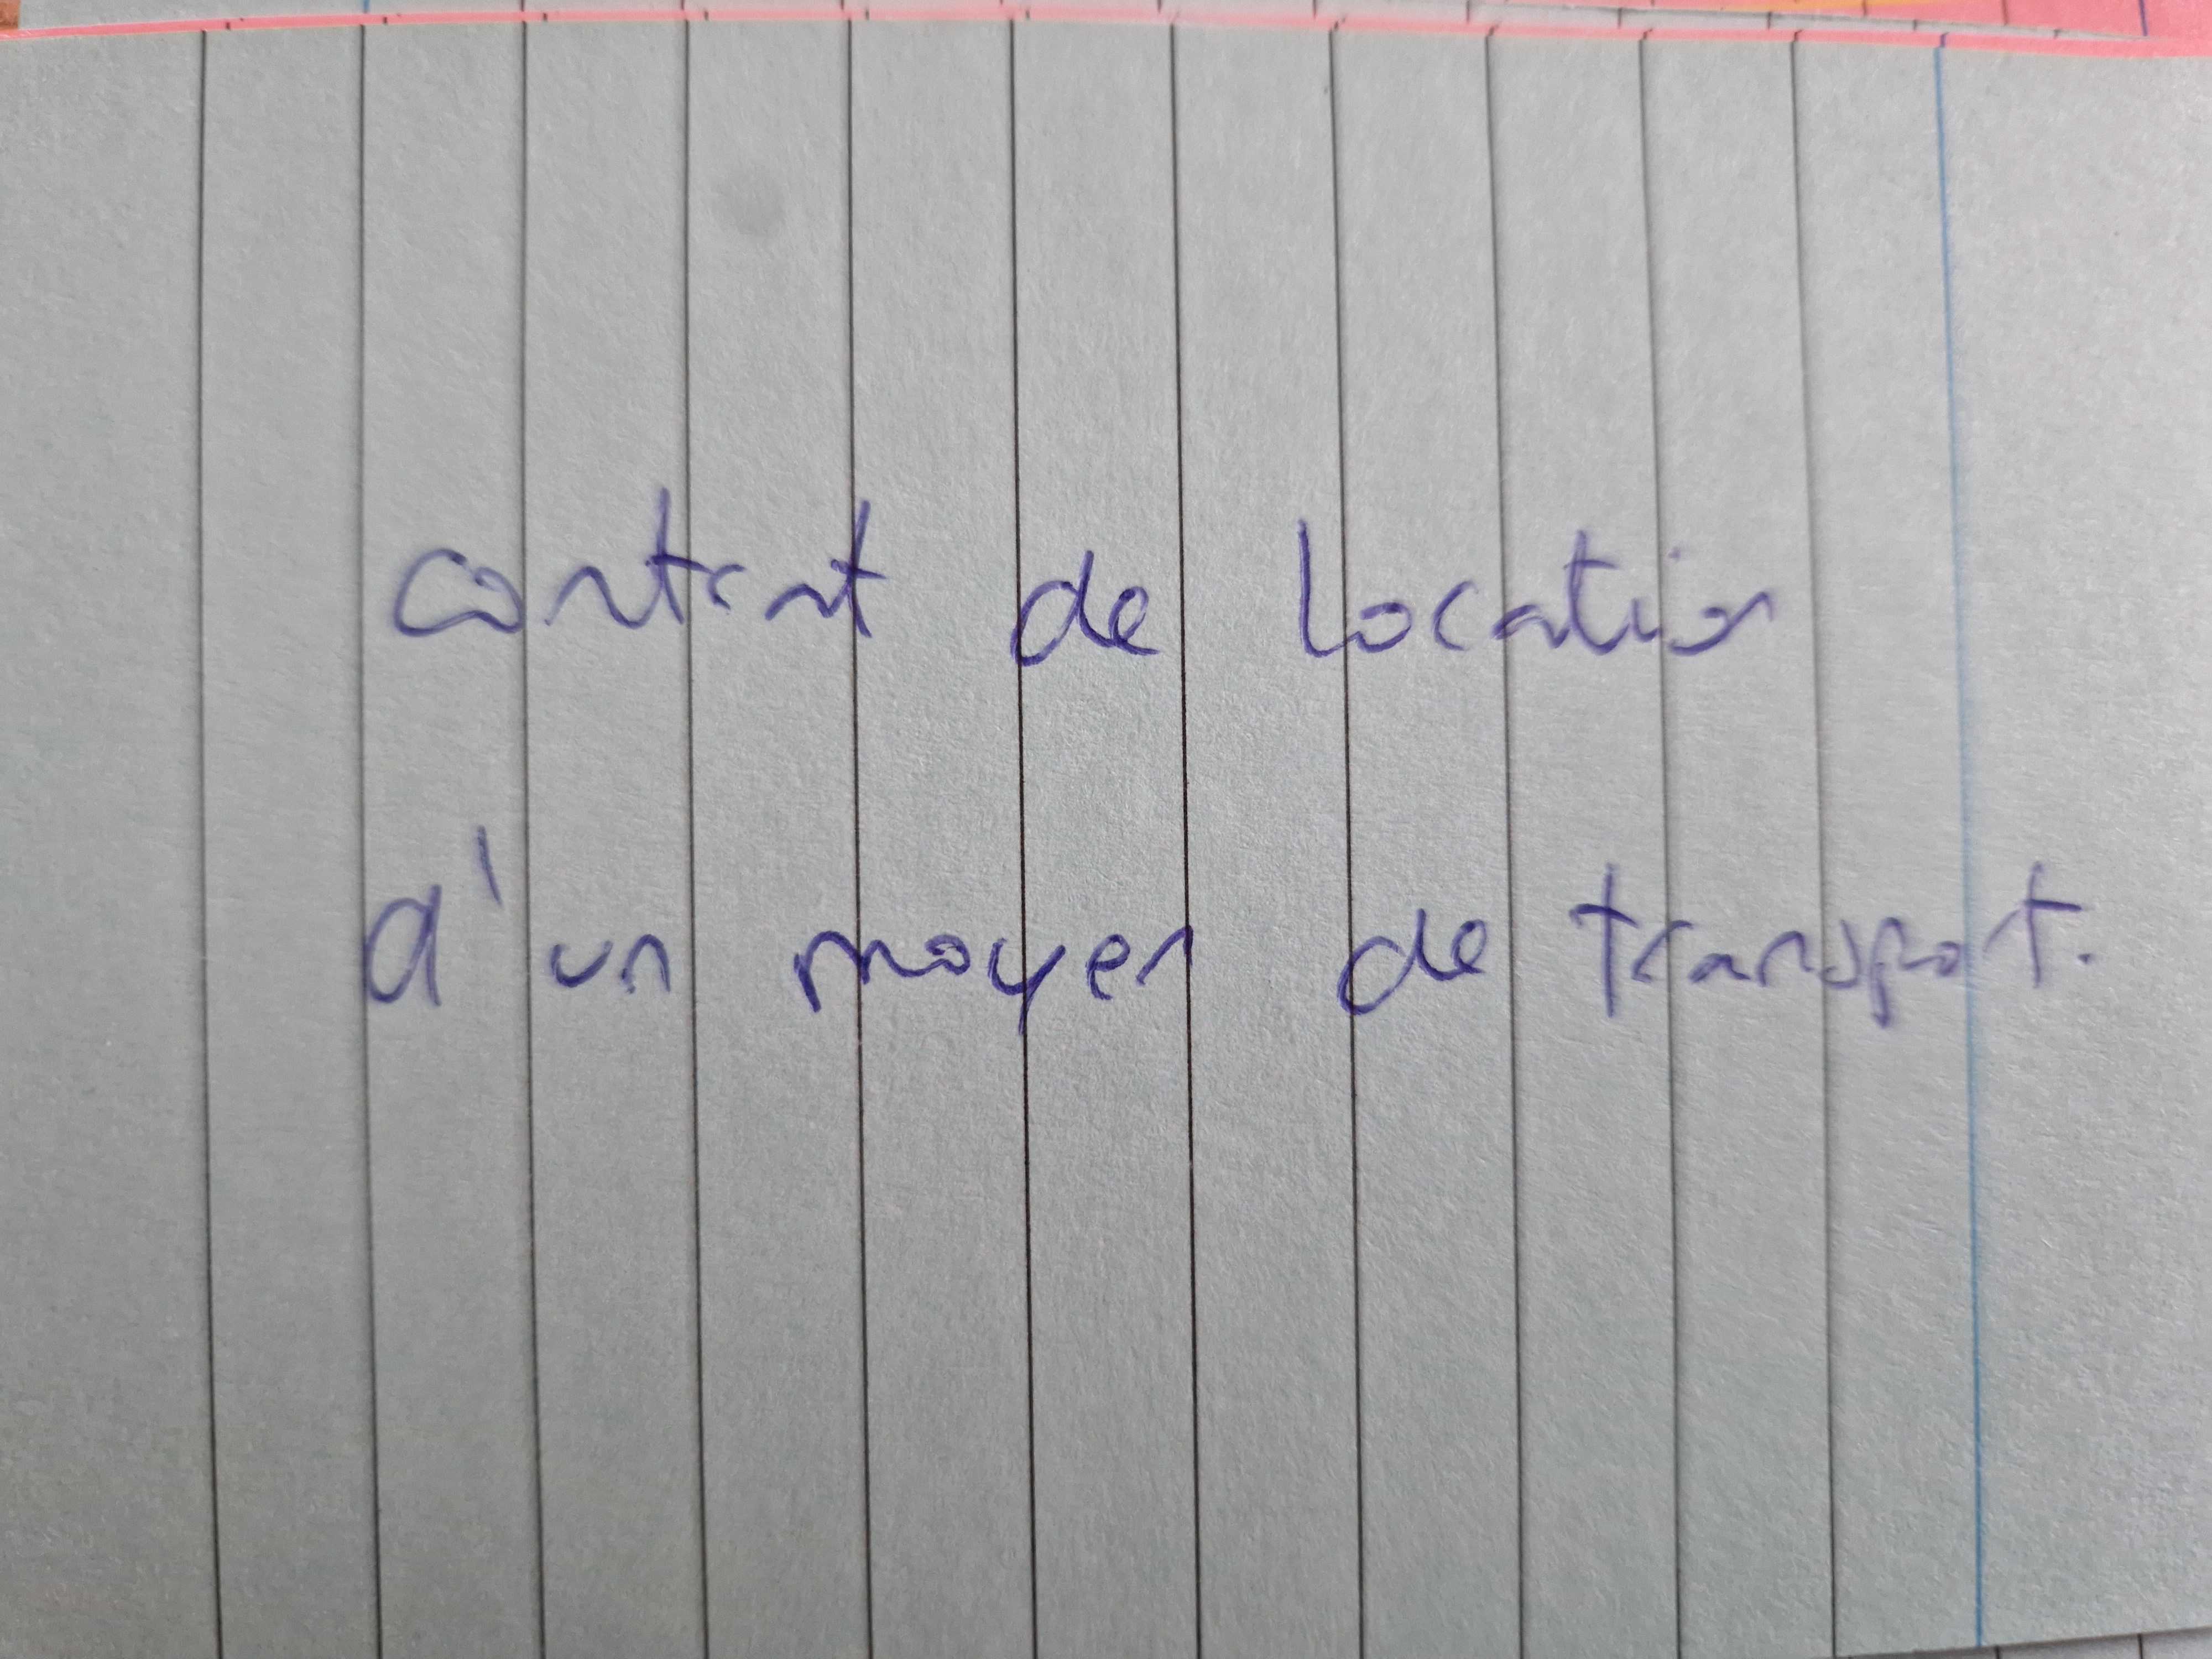 contrat de location
d'un moyen de transport.